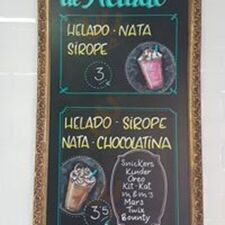 de Helado
HELADO · NATA
SIROPE
3
HELADO · SIROPE
NATA · CHOCOLATINA
Snickers
Kinder
Oreo
Kit-Kat
m & m's
Mars
Twix
Bounty
3'5